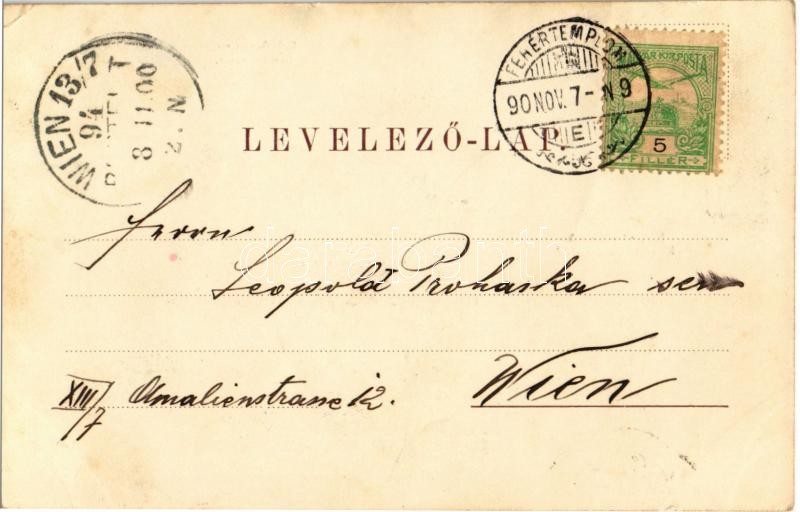 WIEN 13/7
94
8 11.00
2-N
FEHÉRTEMPLOM
90 NOV. 7-N 9
E
MAGYAR KIR. POSTA
5
FILLÉR
LEVELEZŐ-LAP.
Herrn
Leopold Prohaska sen
Wien
XIII/7
Amalienstrasse 12.
darabanth